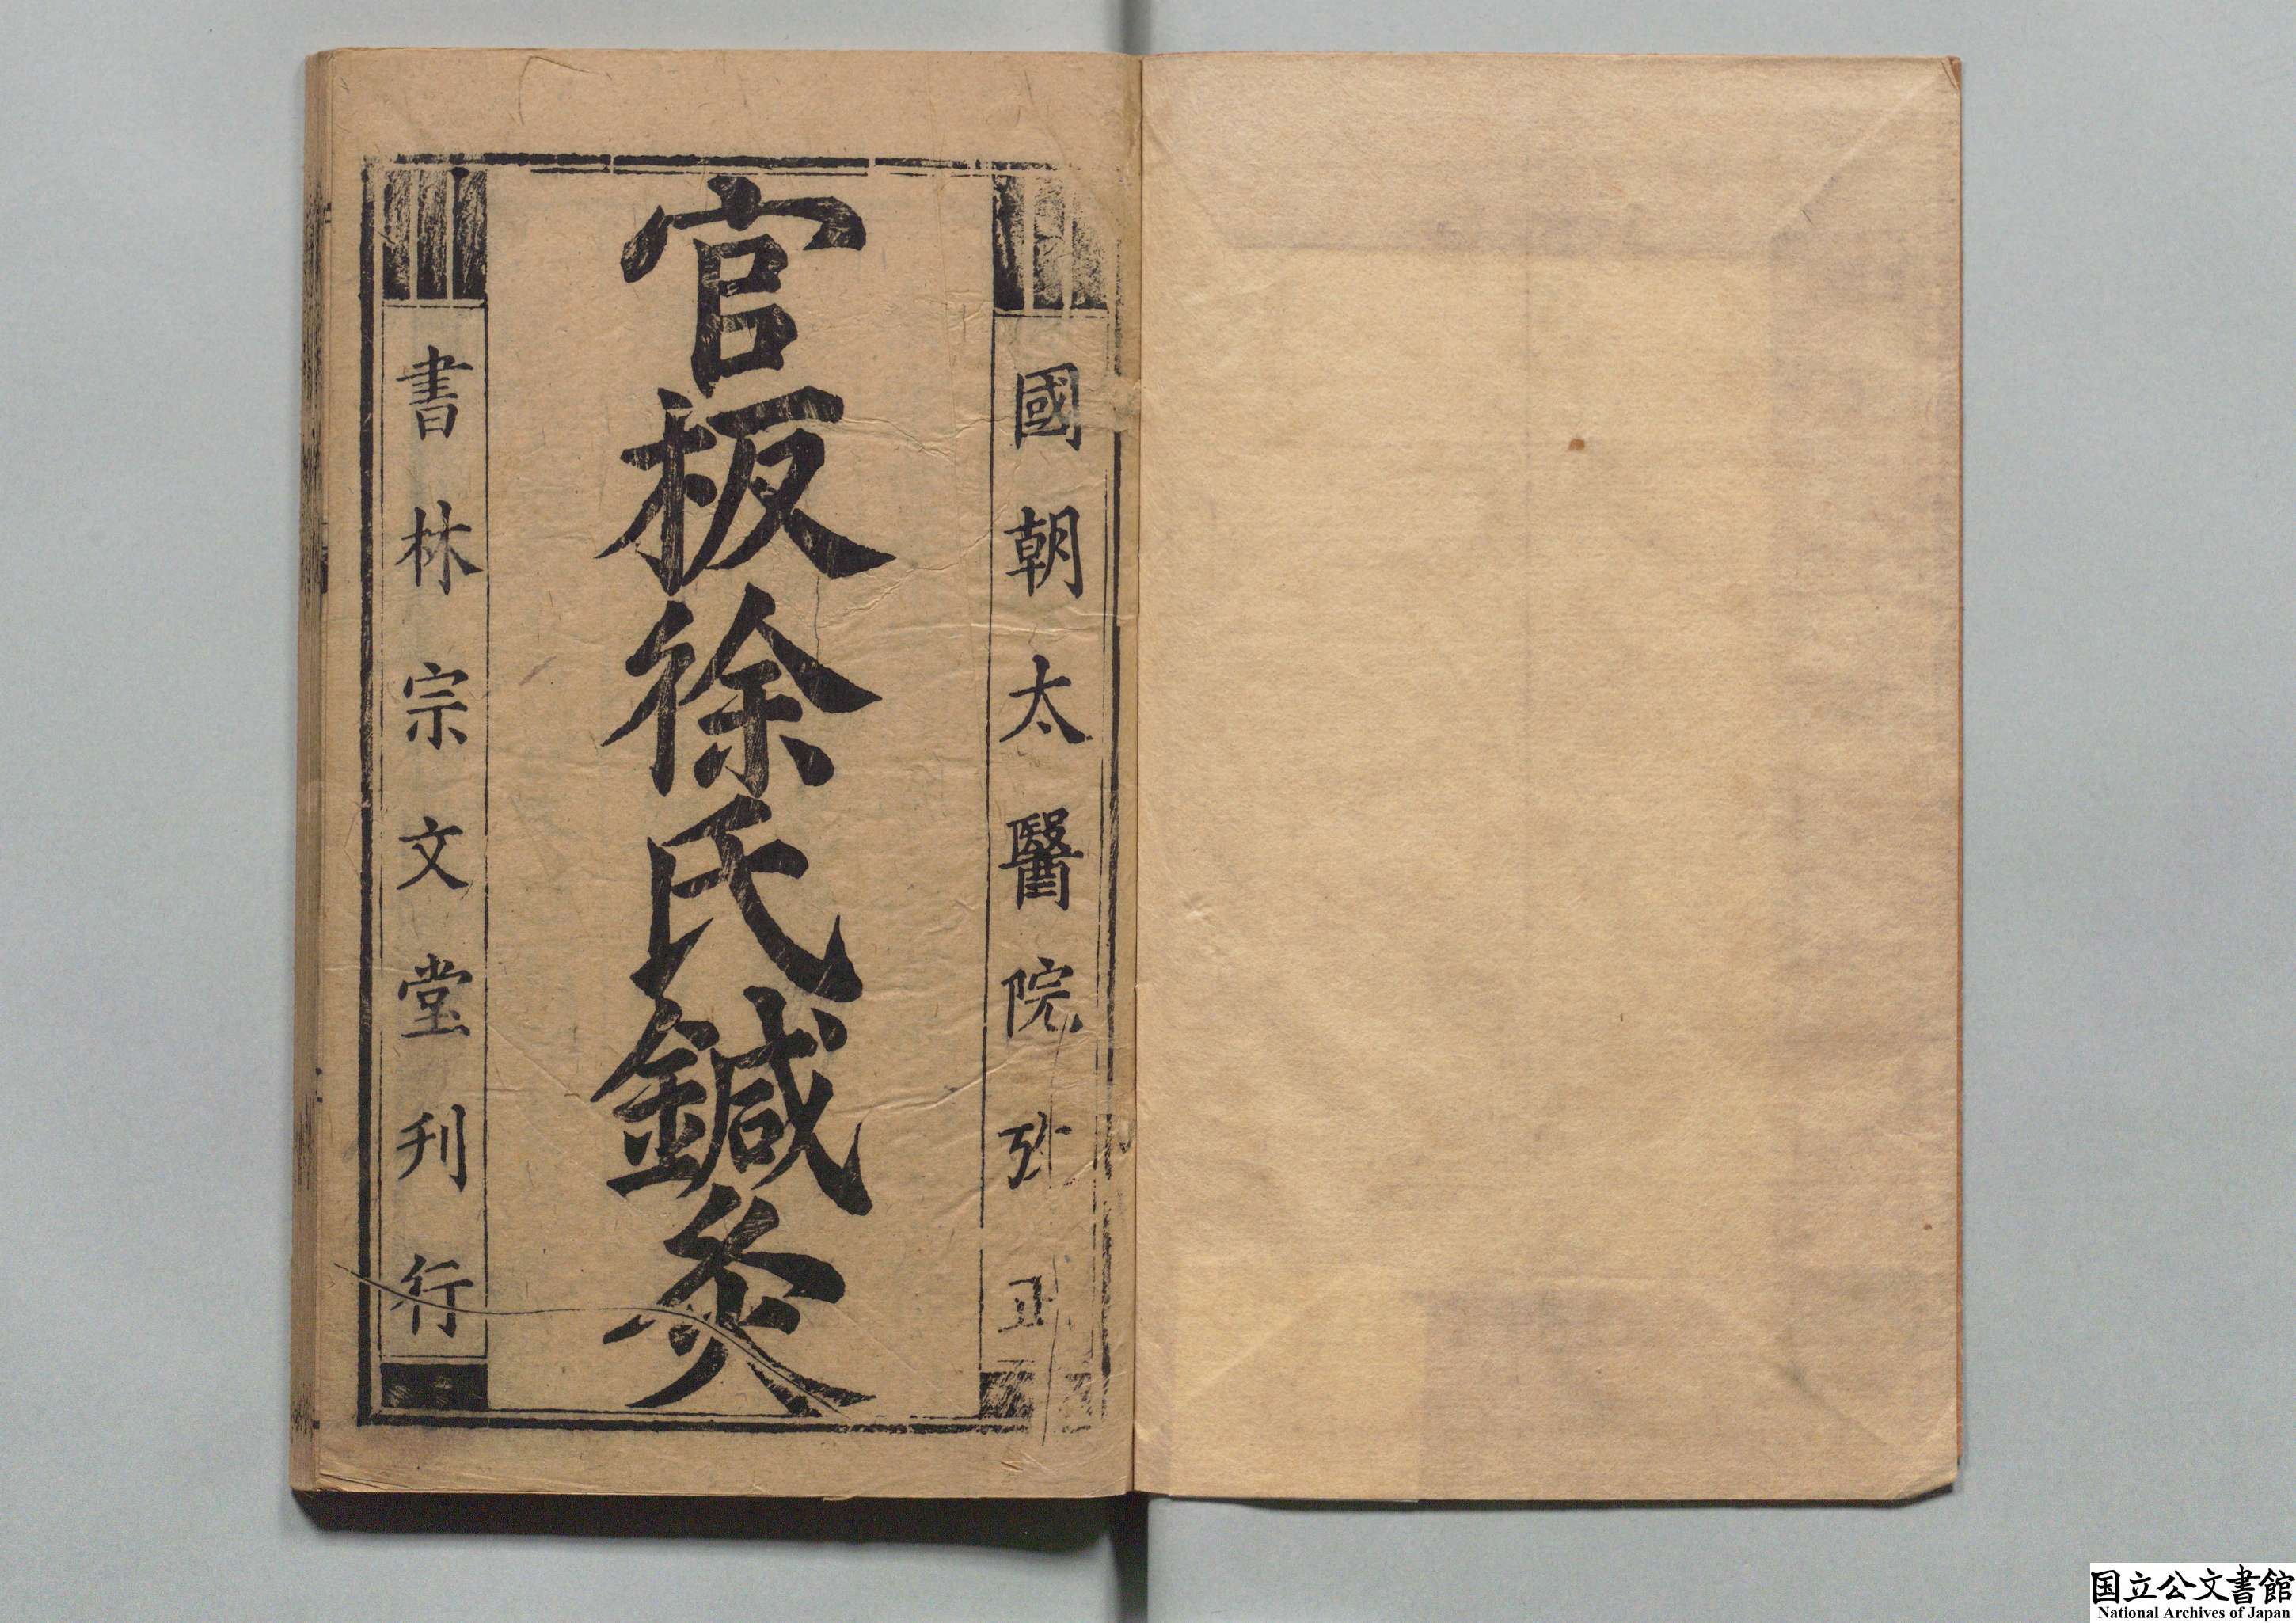 國朝太醫院攷正
官板徐氏鍼灸
書林宗文堂刋行
国立公文書館
National Archives of Japan